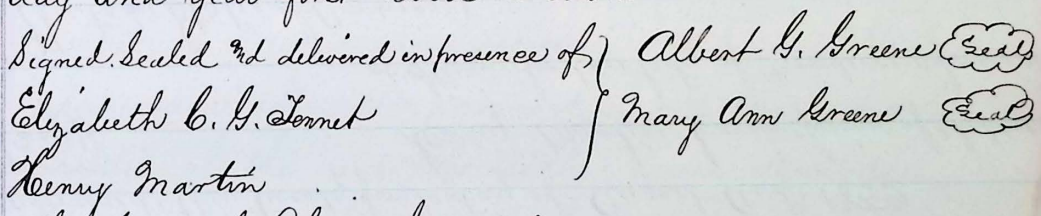 day and year first
Signed. Sealed and delivered in presence of } Albert G. Greene (Seal)
Elizabeth C. G. Jennet } Mary Ann Greene (Seal)
Henry Martin